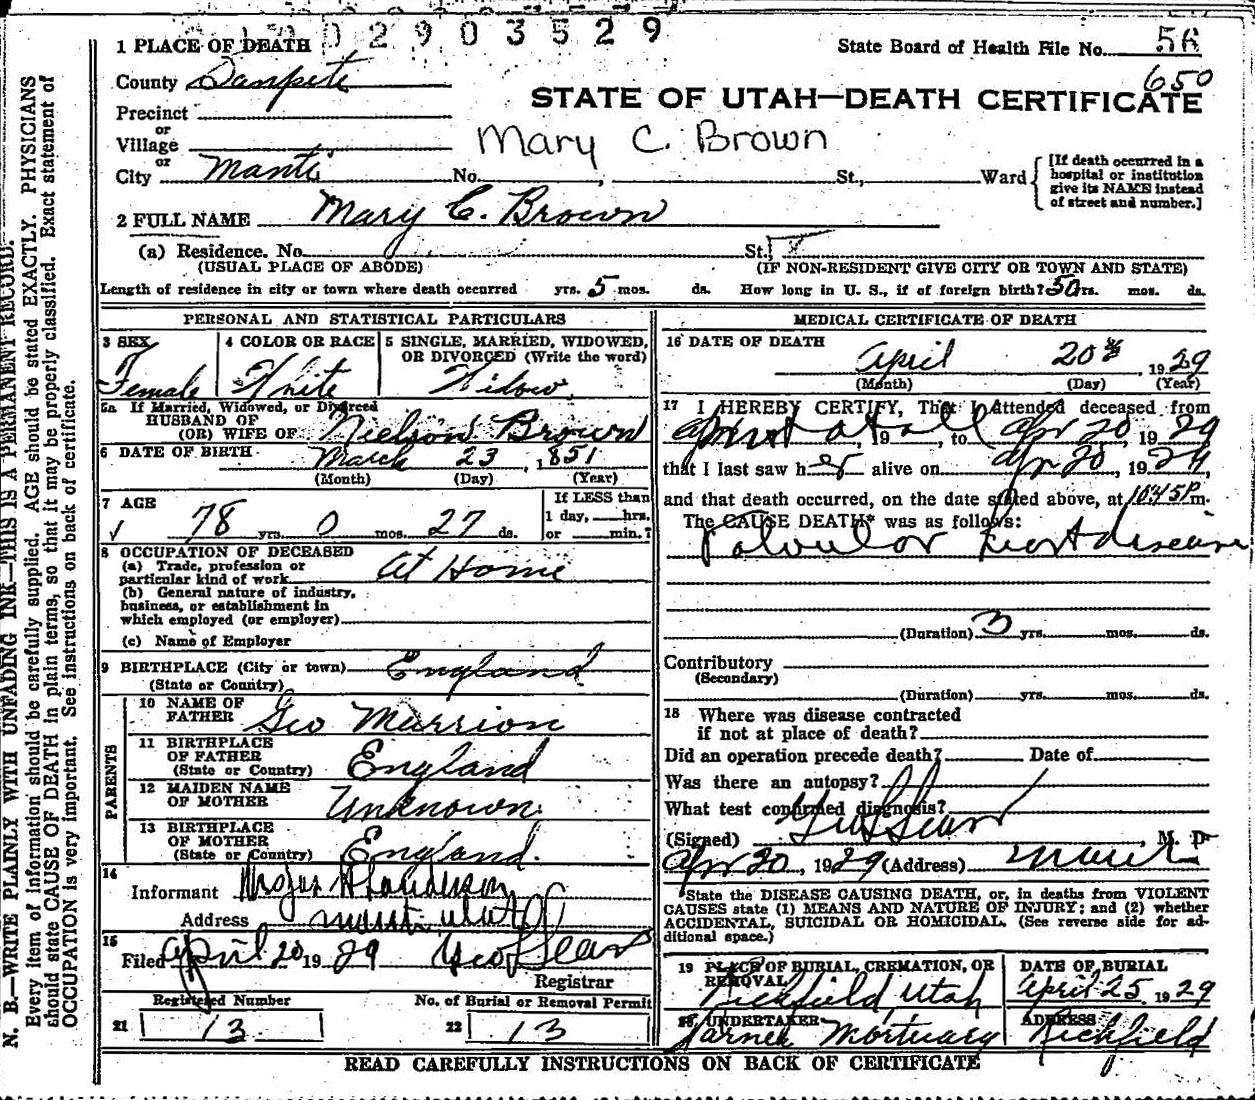 0 2 9 0 3 5 2 9
1 PLACE OF DEATH
State Board of Health File No. 56
650
County Sanpete
STATE OF UTAH—DEATH CERTIFICATE
Precinct
or
Village
Mary C. Brown
or
City Manti No. , St., Ward
[If death occurred in a hospital or institution give its NAME instead of street and number.]
2 FULL NAME Mary C. Brown
(a) Residence. No. St.
(USUAL PLACE OF ABODE) (IF NON-RESIDENT GIVE CITY OR TOWN AND STATE)
Length of residence in city or town where death occurred yrs. 5 mos. ds. How long in U. S., if of foreign birth? 50 yrs. mos. ds.
PERSONAL AND STATISTICAL PARTICULARS
3 SEX
Female
4 COLOR OR RACE
White
5 SINGLE, MARRIED, WIDOWED,
OR DIVORCED (Write the word)
Widow
5a If Married, Widowed, or Divorced
HUSBAND OF
(OR) WIFE OF Nielson Brown
6 DATE OF BIRTH March 23, 1851
(Month) (Day) (Year)
7 AGE
78 yrs. 0 mos. 27 ds.
If LESS than
1 day, hrs.
or min.?
8 OCCUPATION OF DECEASED
(a) Trade, profession or
particular kind of work At Home
(b) General nature of industry,
business, or establishment in
which employed (or employer)
(c) Name of Employer
9 BIRTHPLACE (City or town) England
(State or Country)
PARENTS
10 NAME OF
FATHER Geo Marrion
11 BIRTHPLACE
OF FATHER
(State or Country) England
12 MAIDEN NAME
OF MOTHER Unknown
13 BIRTHPLACE
OF MOTHER
(State or Country) England.
14
Informant
Address Manti Utah
15
Filed April 20 1929 Geo L Sears
Registrar
Registered Number No. of Burial or Removal Permit
21 13 22 13
MEDICAL CERTIFICATE OF DEATH
16 DATE OF DEATH
April 20th, 1929
(Month) (Day) (Year)
17 I HEREBY CERTIFY, That I attended deceased from
not at all, 19 , to Apr 20, 1929
that I last saw her alive on Apr 20, 1929,
and that death occurred, on the date stated above, at 10:45 P m.
The CAUSE DEATH* was as follows:
Valvular heart disease
(Duration) 3 yrs. mos. ds.
Contributory
(Secondary)
(Duration) yrs. mos. ds.
18 Where was disease contracted
if not at place of death?
Did an operation precede death? Date of
Was there an autopsy?
What test confirmed diagnosis?
(Signed) Geo L Sears M. D.
Apr 20, 1929 (Address) Manti
*State the DISEASE CAUSING DEATH, or, in deaths from VIOLENT
CAUSES state (1) MEANS AND NATURE OF INJURY; and (2) whether
ACCIDENTAL, SUICIDAL OR HOMICIDAL. (See reverse side for ad-
ditional space.)
19 PLACE OF BURIAL, CREMATION, OR
REMOVAL
Richfield Utah
DATE OF BURIAL
April 25, 1929
20 UNDERTAKER
Mortuary
ADDRESS
Richfield
READ CAREFULLY INSTRUCTIONS ON BACK OF CERTIFICATE
N. B.—WRITE PLAINLY WITH UNFADING INK—THIS IS A PERMANENT RECORD.
Every item of information should be carefully supplied. AGE should be stated EXACTLY. PHYSICIANS
should state CAUSE OF DEATH in plain terms, so that it may be properly classified. Exact statement of
OCCUPATION is very important. See instructions on back of certificate.